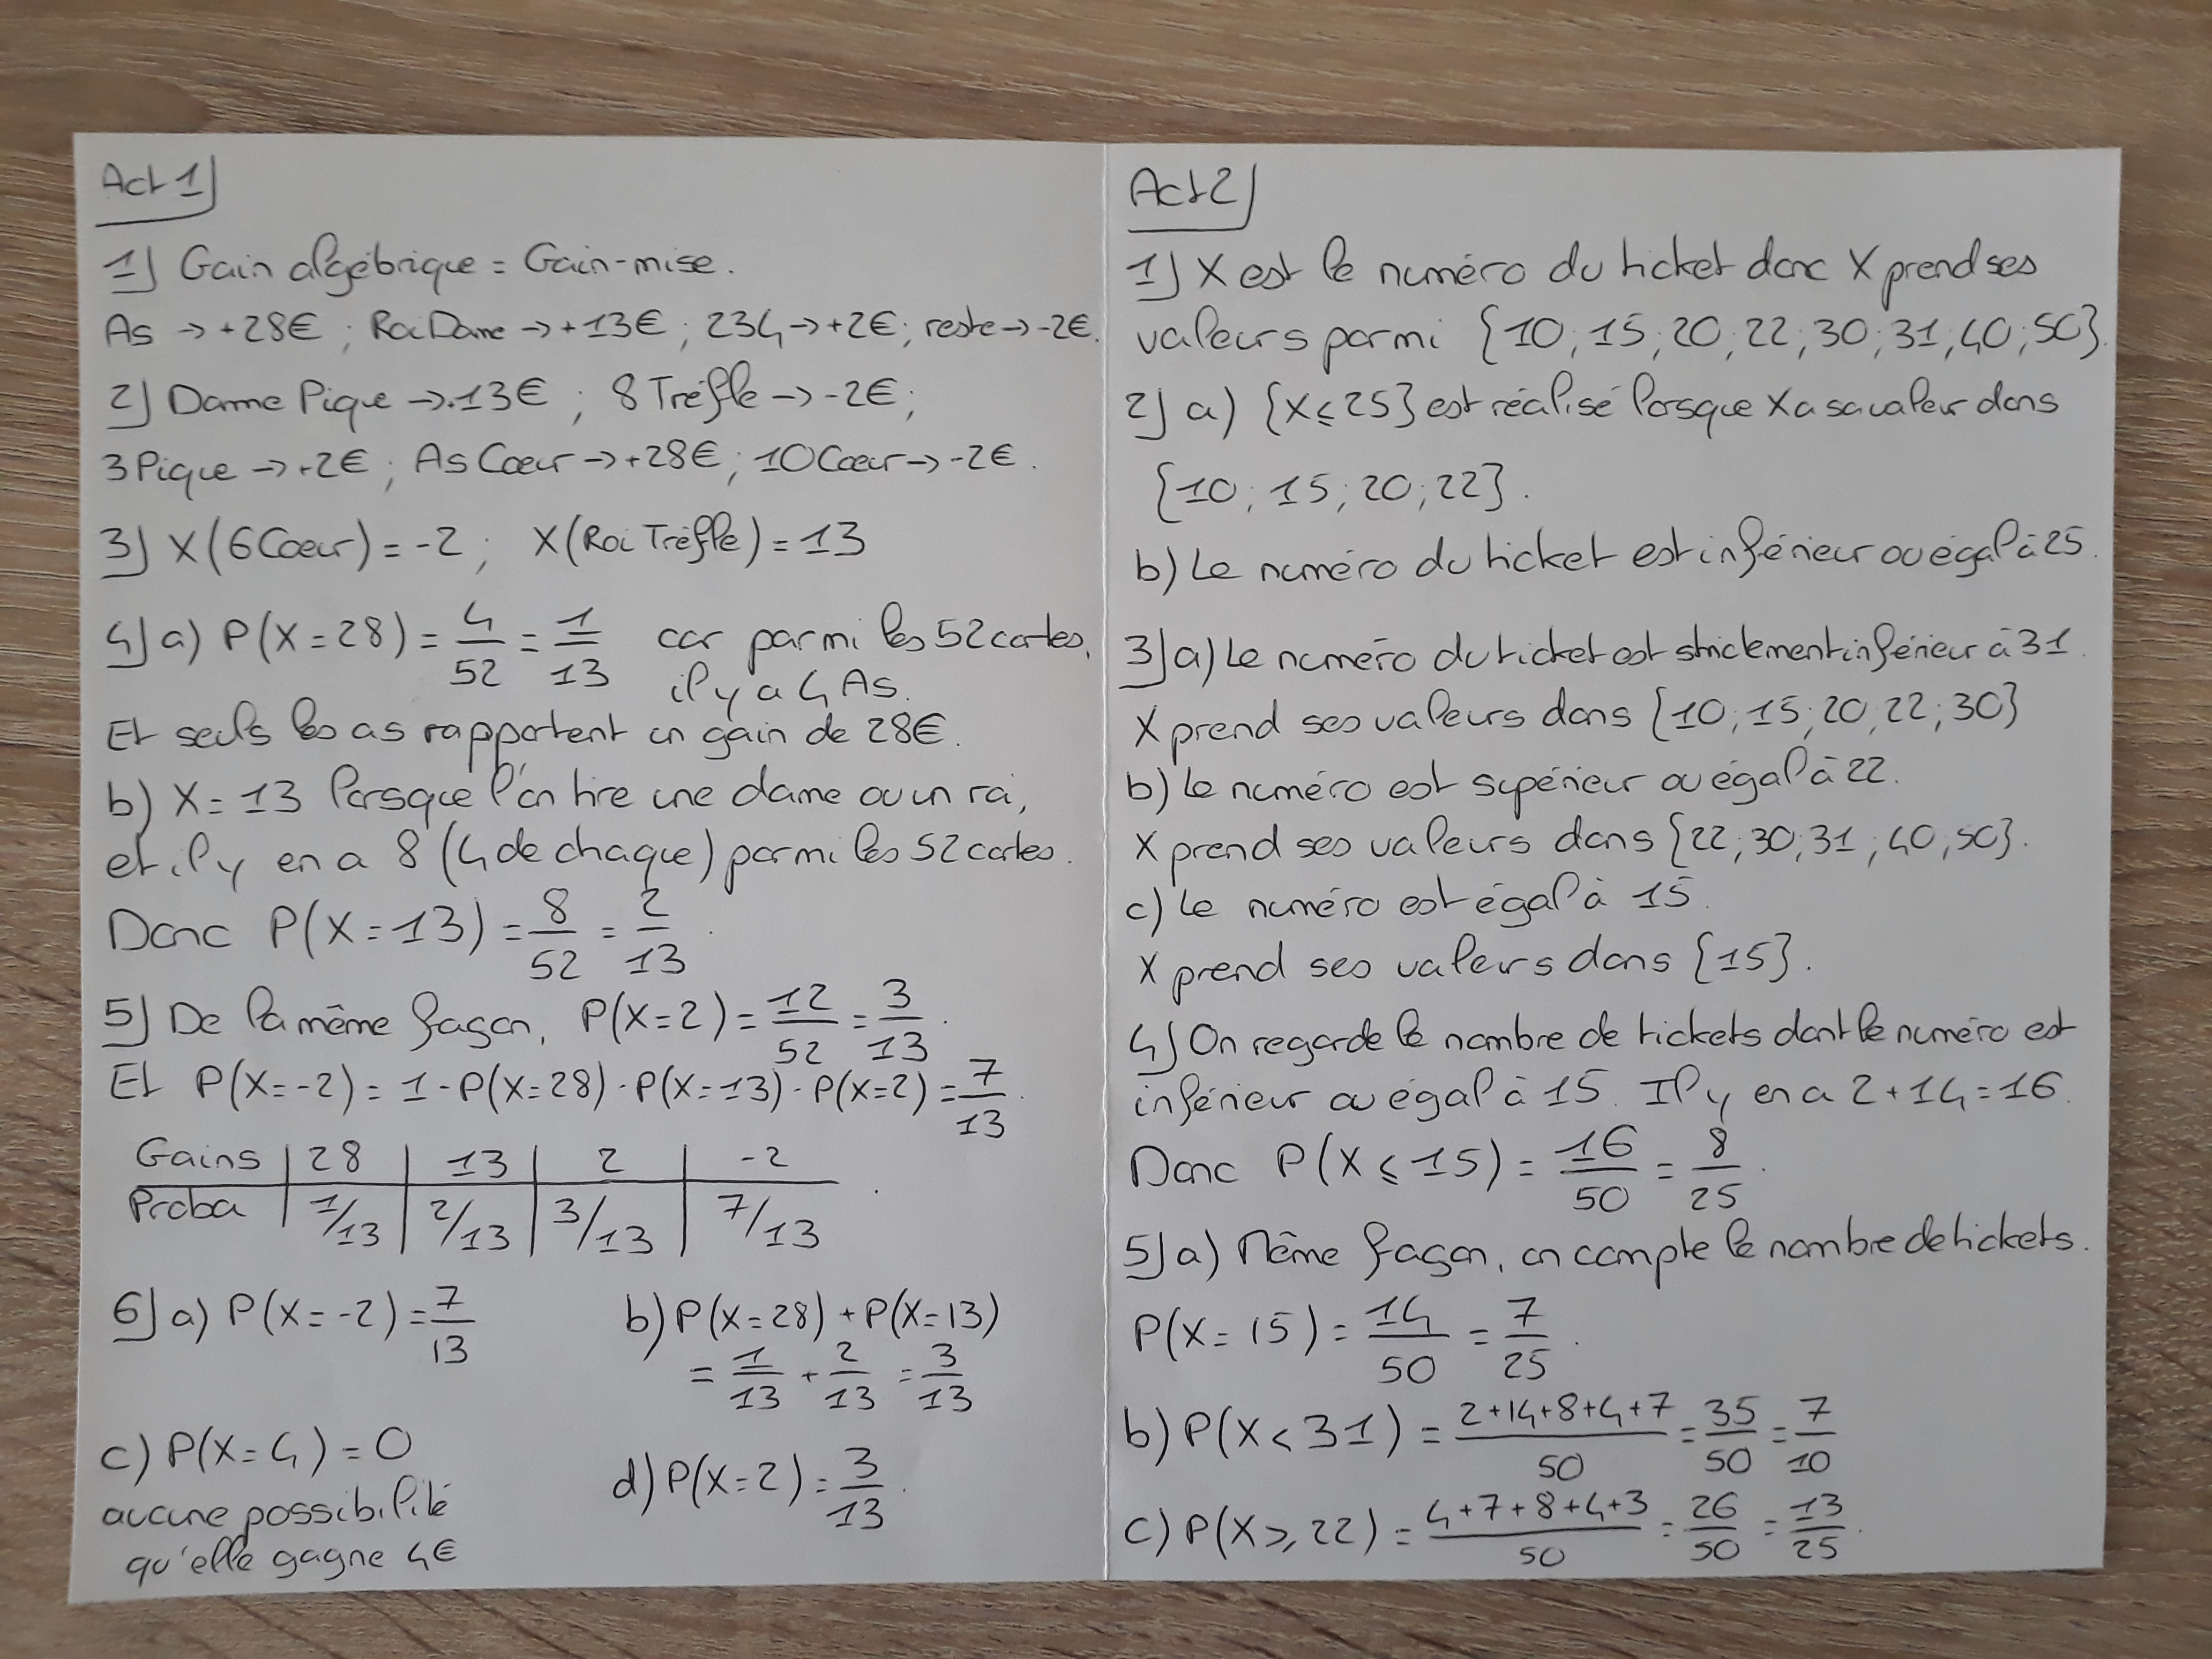 Act 1)
1) Gain algébrique = Gain-mise.
As → +28€ ; Roi Dame → +13€ ; 234 → +2€ ; reste → -2€.
2) Dame Pique → 13€ ; 8 Trèfle → -2€ ;
3 Pique → +2€ ; As Cœur → +28€ ; 10 Cœur → -2€.
3) X(6 Cœur) = -2 ; X(Roi Trèfle) = 13
4) a) P(X=28) = 4/52 = 1/13 car parmi les 52 cartes,
il y a 4 As.
Et seuls les as rapportent un gain de 28€.
b) X = 13 lorsque l'on tire une dame ou un roi,
et il y en a 8 (4 de chaque) parmi les 52 cartes.
Donc P(X=13) = 8/52 = 2/13.
5) De la même façon, P(X=2) = 12/52 = 3/13.
Et P(X=-2) = 1 - P(X=28) - P(X=13) - P(X=2) = 7/13.
Gains | 28 | 13 | 2 | -2
Proba | 1/13 | 2/13 | 3/13 | 7/13.
6) a) P(X=-2) = 7/13
b) P(X=28) + P(X=13)
= 1/13 + 2/13 = 3/13
c) P(X=4) = 0
aucune possibilité
qu'elle gagne 4€
d) P(X=2) = 3/13.
Act 2)
1) X est le numéro du ticket donc X prend ses
valeurs parmi {10; 15; 20; 22; 30; 31; 40; 50}.
2) a) {X ≤ 25} est réalisé lorsque X a sa valeur dans
{10; 15; 20; 22}.
b) Le numéro du ticket est inférieur ou égal à 25.
3) a) Le numéro du ticket est strictement inférieur à 31.
X prend ses valeurs dans {10; 15; 20; 22; 30}
b) Le numéro est supérieur ou égal à 22.
X prend ses valeurs dans {22; 30; 31; 40; 50}.
c) Le numéro est égal à 15.
X prend ses valeurs dans {15}.
4) On regarde le nombre de tickets dont le numéro est
inférieur ou égal à 15. Il y en a 2 + 14 = 16.
Donc P(X ≤ 15) = 16/50 = 8/25.
5) a) Même façon, on compte le nombre de tickets.
P(X = 15) = 14/50 = 7/25.
b) P(X < 31) = (2+14+8+4+7)/50 = 35/50 = 7/10
c) P(X ≥ 22) = (4+7+8+4+3)/50 = 26/50 = 13/25.